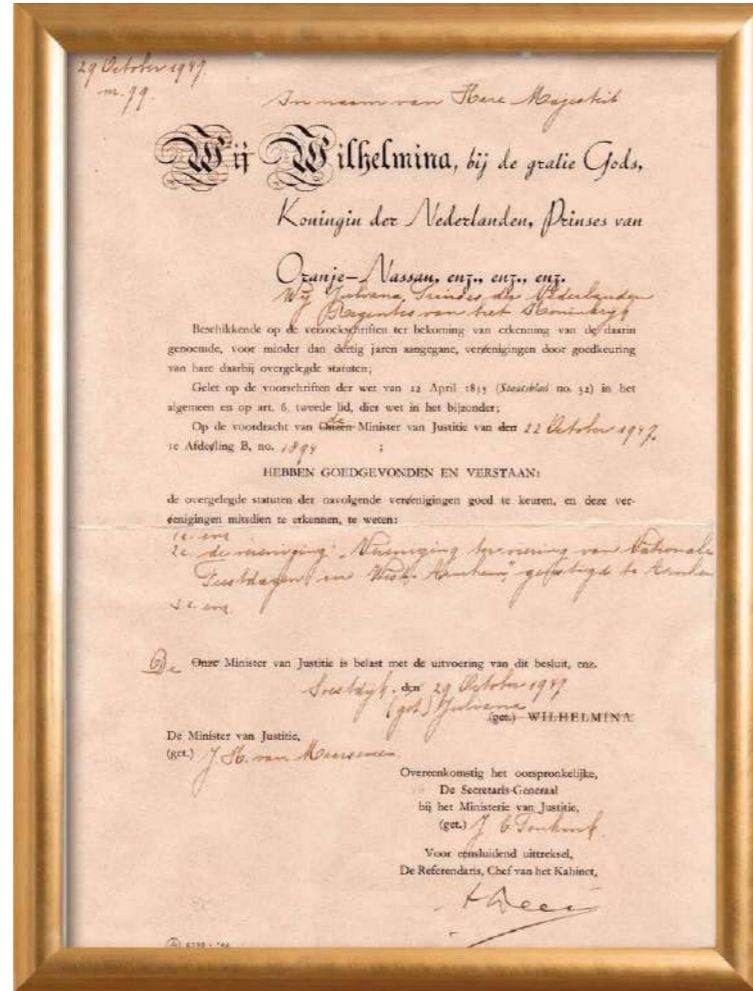 29 October 1947.
no. 99.
In naam van Hare Majesteit
Wij Wilhelmina, bij de gratie Gods,
Koningin der Nederlanden, Prinses van
Oranje-Nassau, enz., enz., enz.
Wij Juliana, Prinses der Nederlanden
Regentes van het Koninkrijk
Beschikkende op de verzoekschriften ter bekoming van erkenning van de daarin
genoemde, voor minder dan dertig jaren aangegane, verenigingen door goedkeuring
van hare daarbij overgelegde statuten;
Gelet op de voorschriften der wet van 22 April 1855 (Staatsblad no. 32) in het
algemeen en op art. 6, tweede lid, dier wet in het bijzonder;
Op de voordracht van Onzen de Minister van Justitie van den 22 October 1947,
1e Afdeling B, no. 1894 ;
HEBBEN GOEDGEVONDEN EN VERSTAAN:
de overgelegde statuten der navolgende verenigingen goed te keuren, en deze ver-
enigingen mitsdien te erkennen, te weten:
1e. enz.
2e. de vereniging: „Vereniging ter viering van Nationale
Feestdagen in West-Arnhem", gevestigd te Arnhem
3e. enz.
De Onze Minister van Justitie is belast met de uitvoering van dit besluit, enz.
Soestdijk, den 29 October 1947
(get) Juliana
(get.) WILHELMINA
De Minister van Justitie,
(get.) J. H. van Maarseveen.
Overeenkomstig het oorspronkelijke,
De Secretaris-Generaal
bij het Ministerie van Justitie,
(get.) J C Tenkink.
Voor eensluidend uittreksel,
De Referendaris, Chef van het Kabinet,